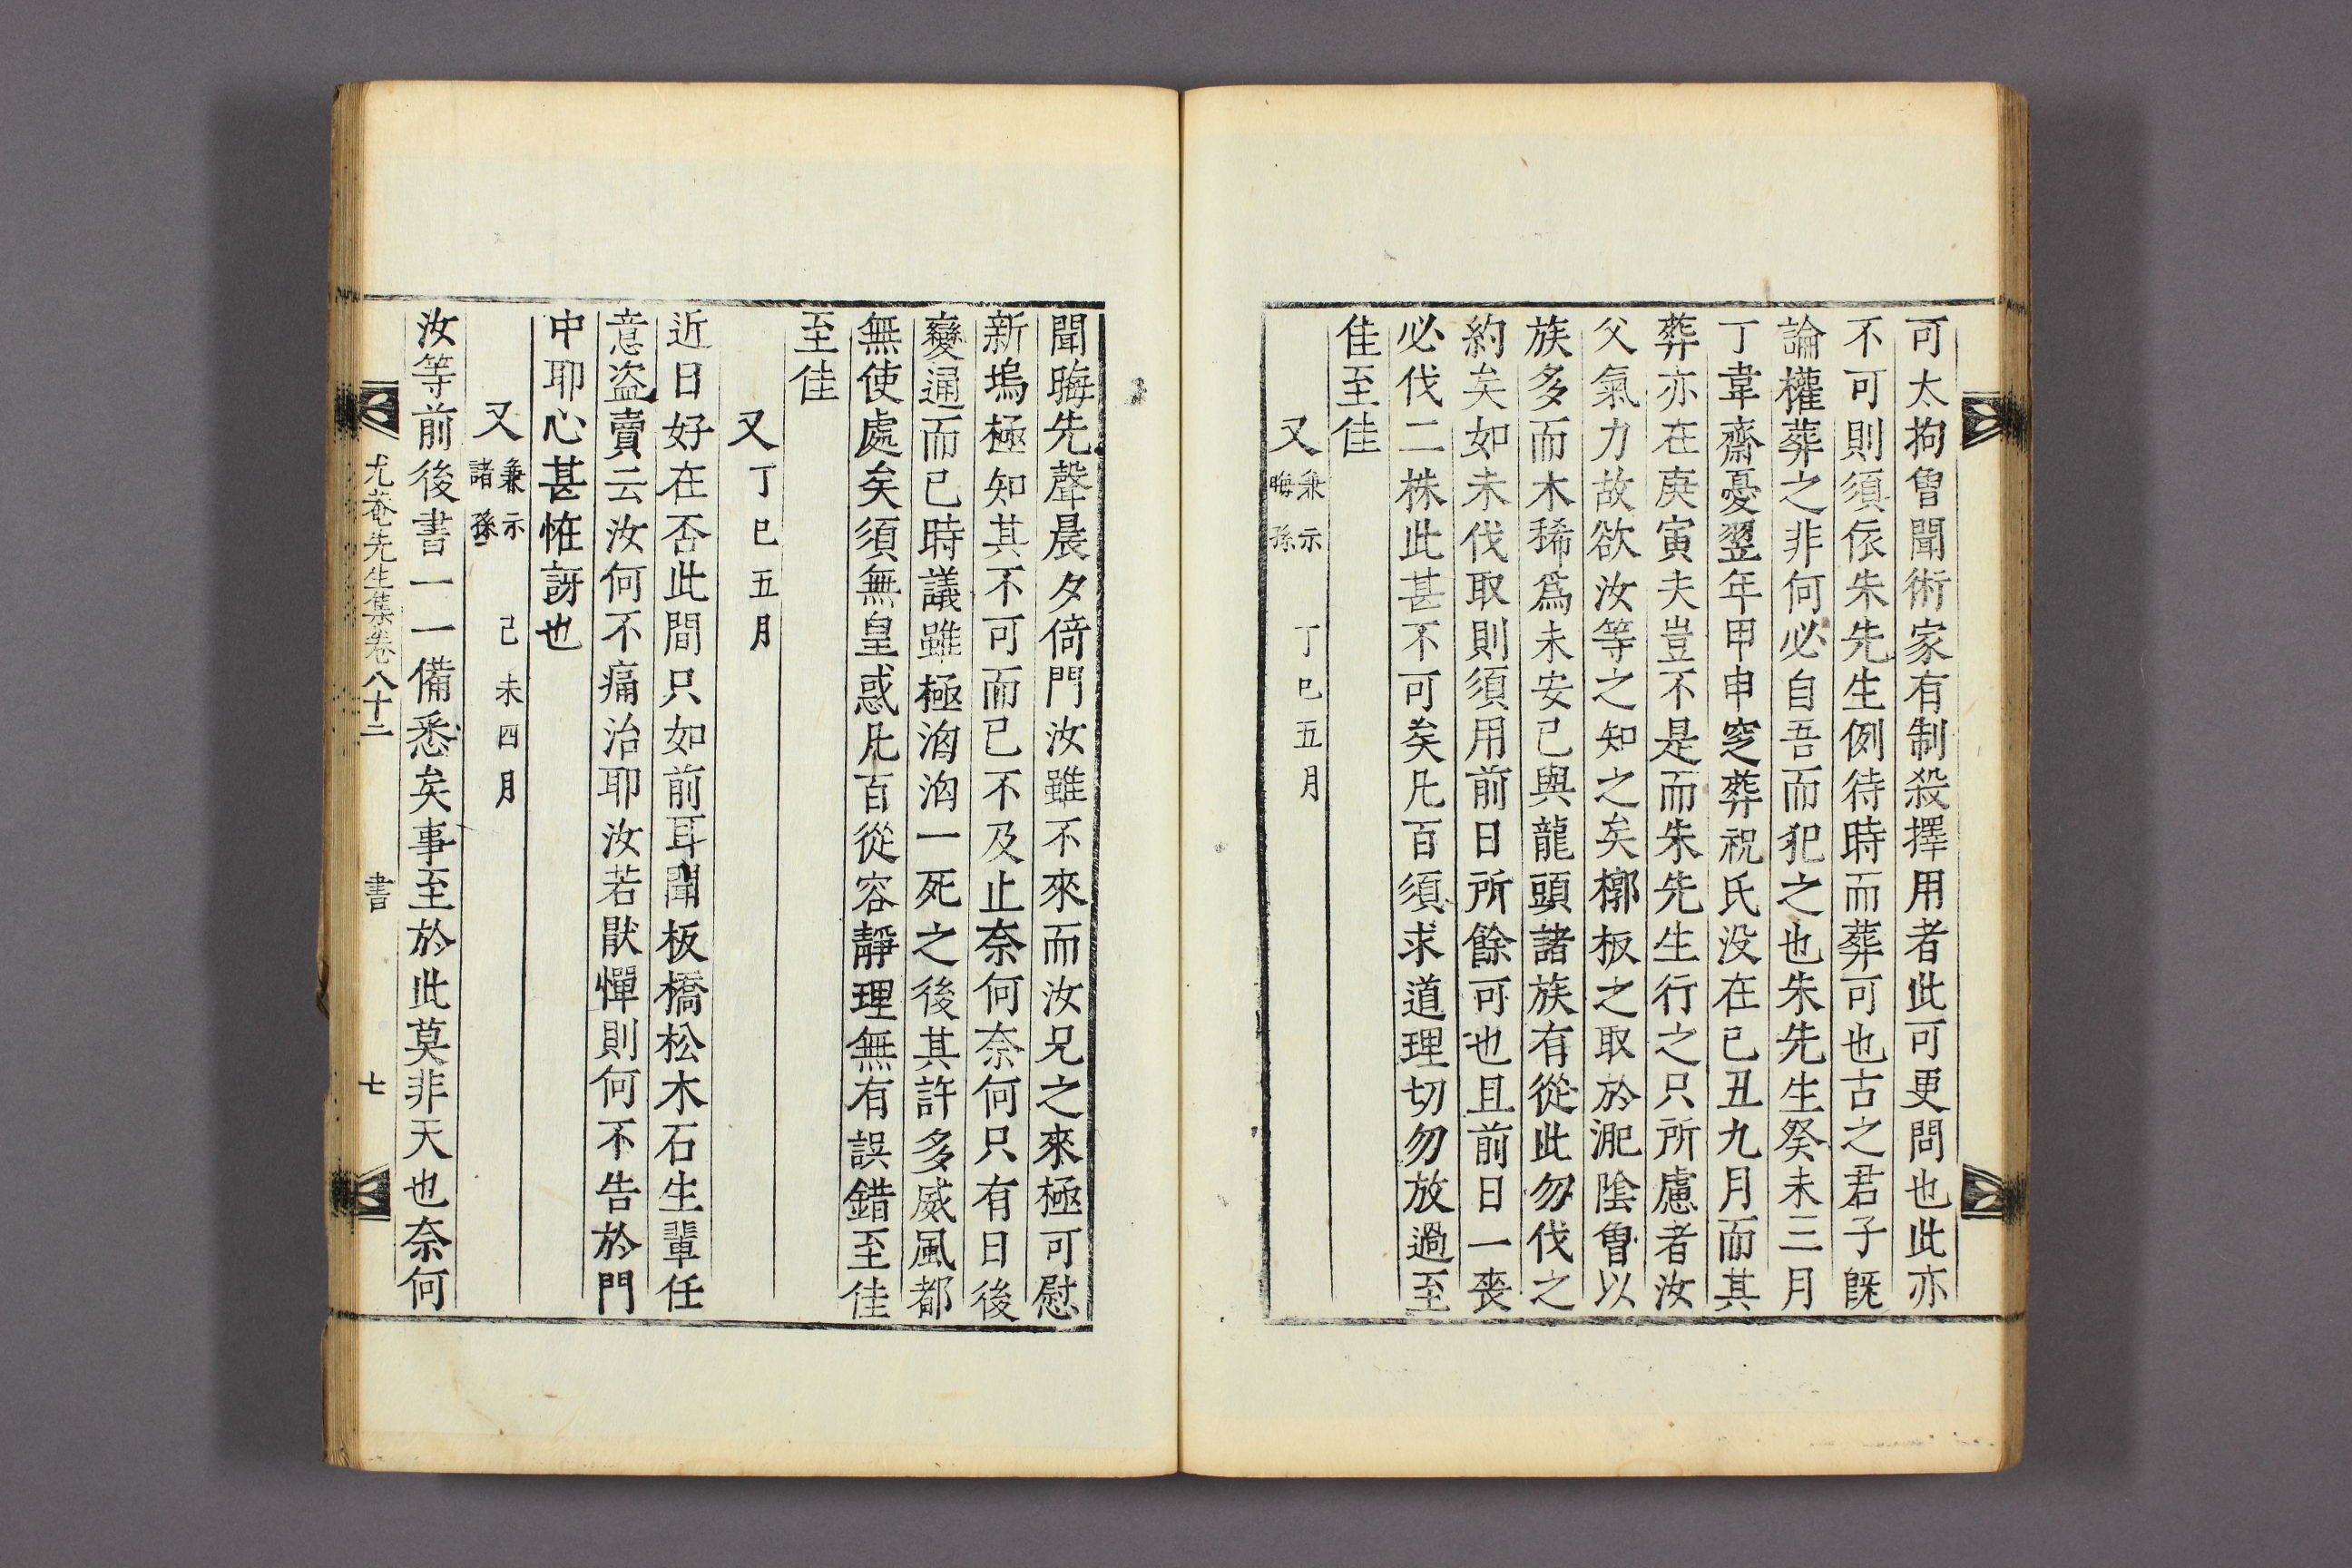 可太拘曾聞術家有制殺擇用者此可更問也此亦
不可則須依朱先生例待時而葬可也古之君子旣
論權葬之非何必自吾而犯之也朱先生癸未三月
丁韋齋憂翌年甲申窆葬祝氏没在己丑九月而其
葬亦在庚寅夫豈不是而朱先生行之只所慮者汝
父氣力故欲汝等之知之矣槨板之取於淝陰曾以
族多而木稀爲未安已與龍頭諸族有從此勿伐之
約矣如未伐取則須用前日所餘可也且前日一喪
必伐二株此甚不可矣凡百須求道理切勿放過至
佳至佳
又 兼示晦孫 丁巳五月
聞晦先聲晨夕倚門汝雖不來而汝兄之來極可慰
新塢極知其不可而已不及止奈何奈何只有日後
變通而已時議雖極洶洶一死之後其許多威風都
無使處矣須無皇惑凡百從容靜理無有誤錯至佳
至佳
又 丁巳五月
近日好在否此間只如前耳聞板橋松木石生輩任
意盜賣云汝何不痛治耶汝若厭憚則何不告於門
中耶心甚恠訝也
又 兼示諸孫 己未四月
汝等前後書一一備悉矣事至於此莫非天也奈何
尤菴先生集卷八十二 書 七